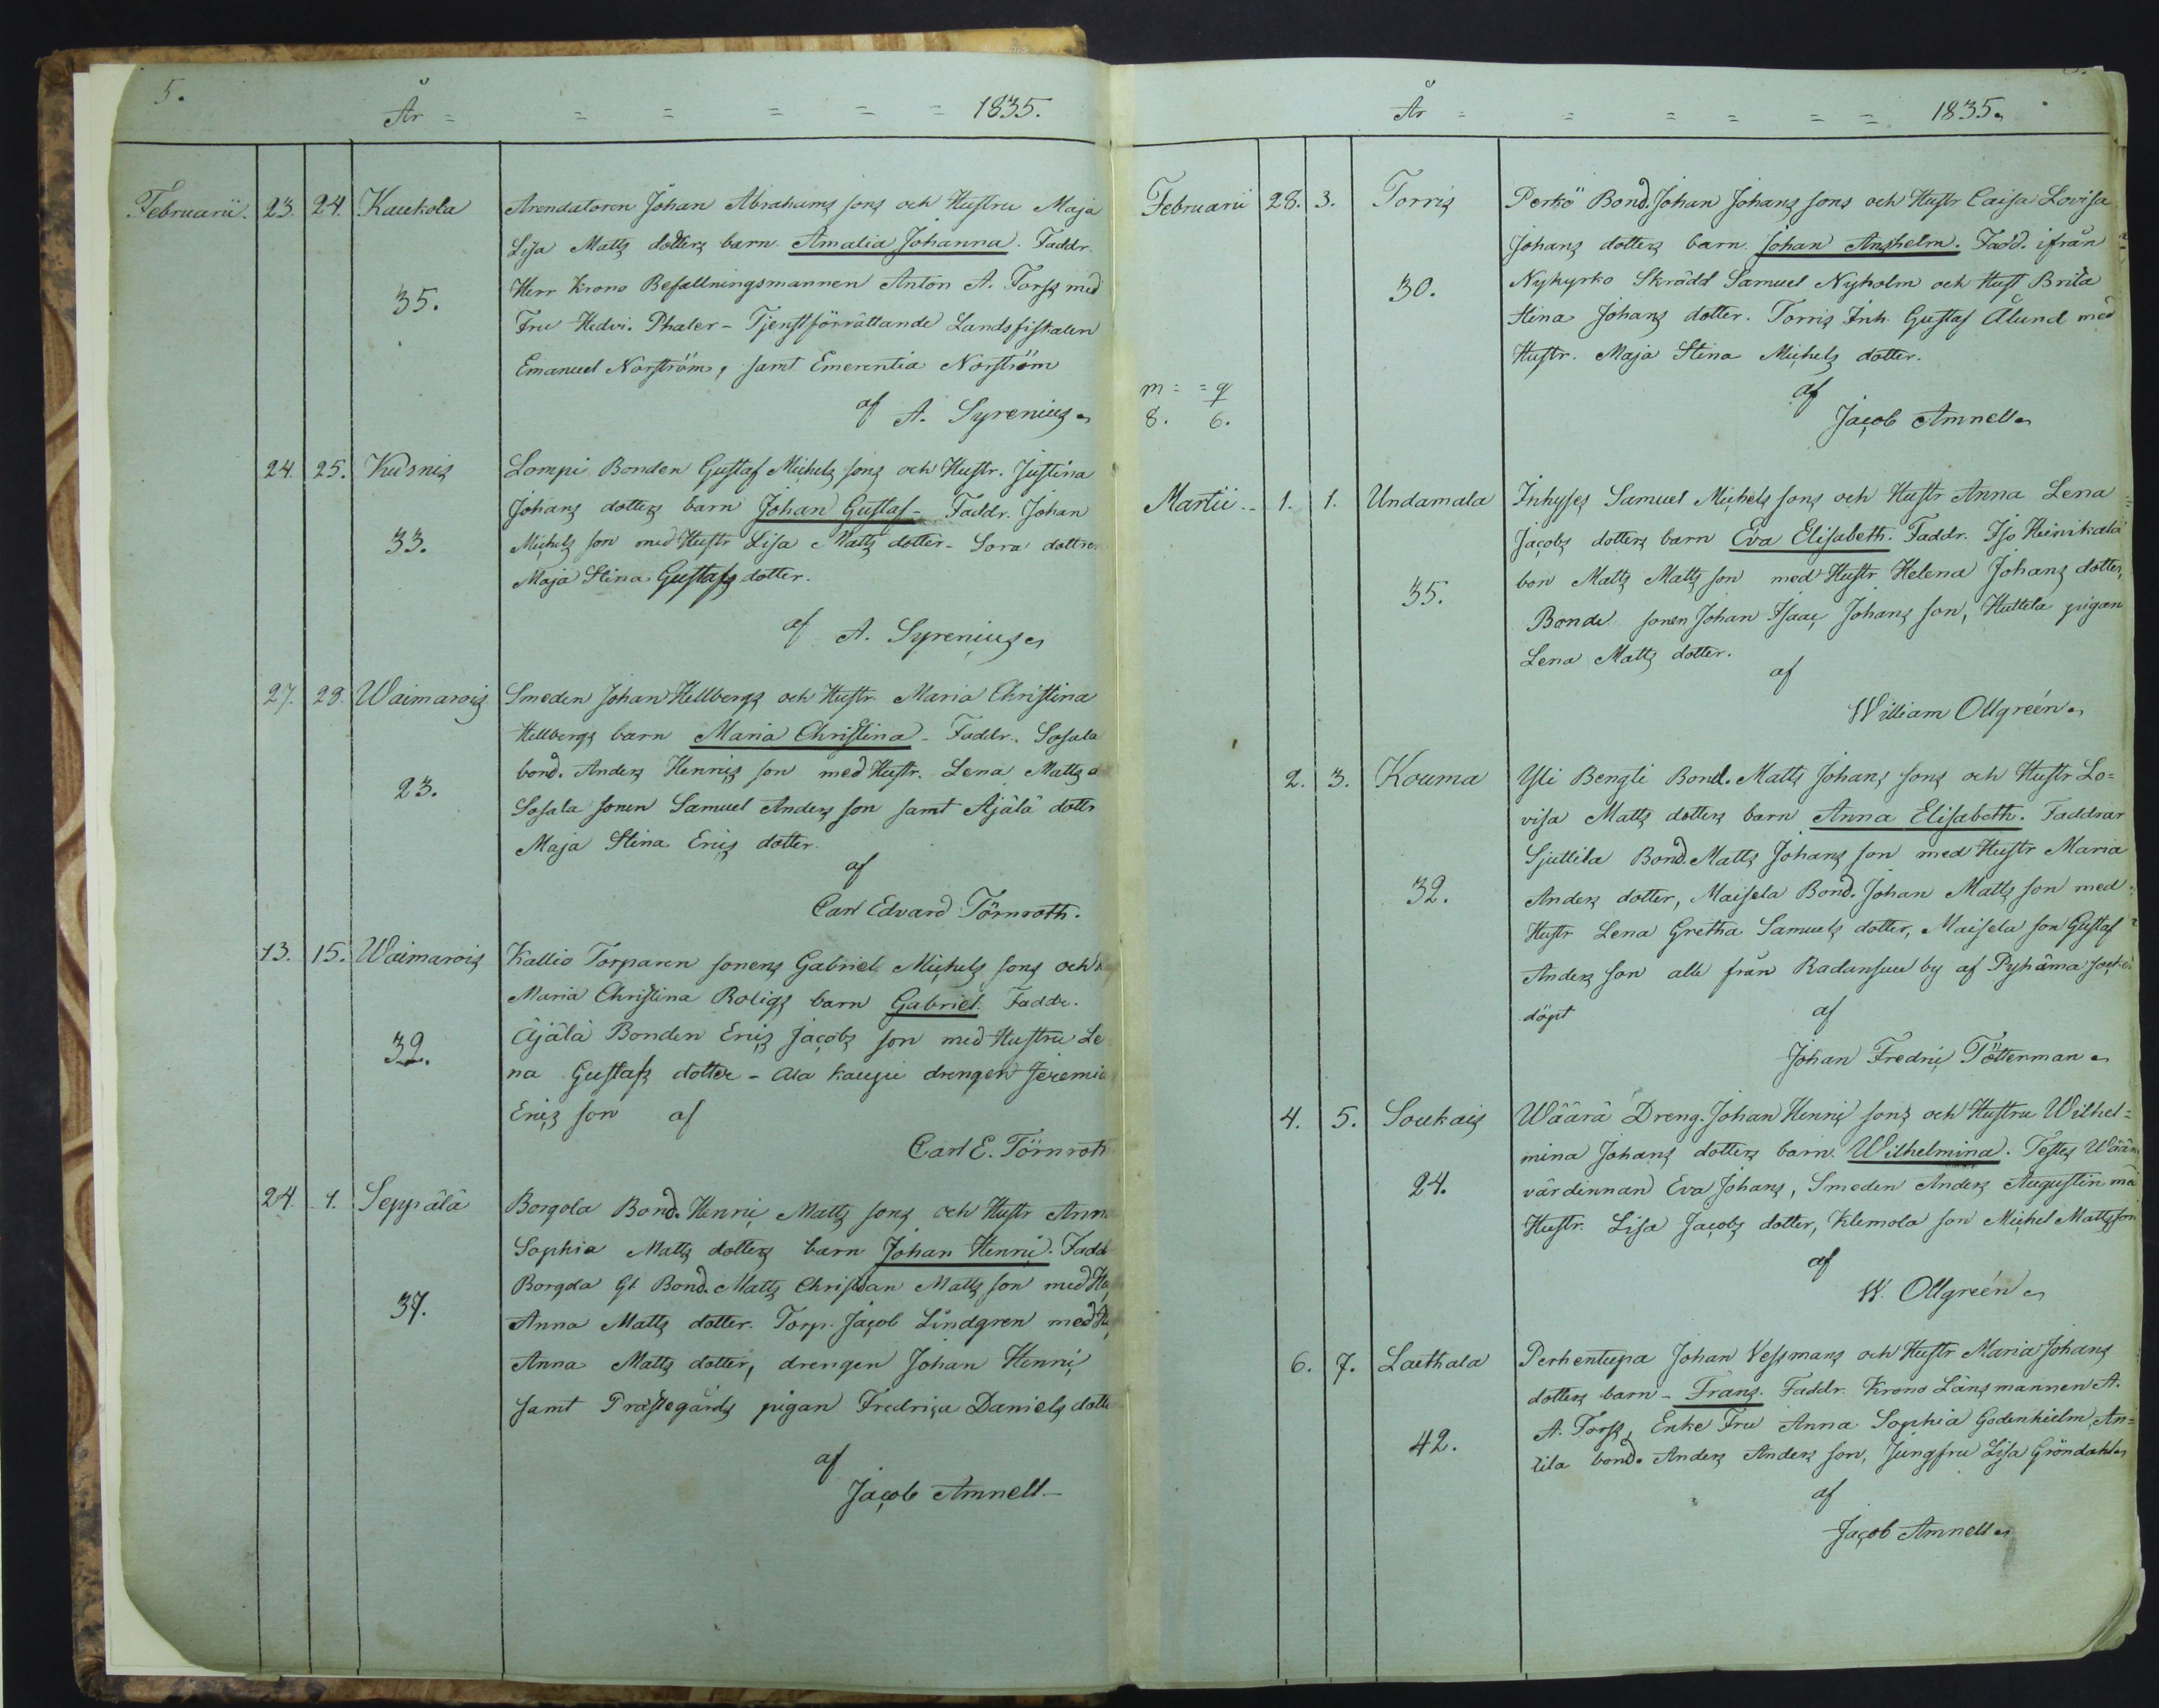 5.
År = = = = = = 1835.
Februarii. 23. 24. Kaukola Arendatoren Johan Abrahams sons och Hustru Maja
Lisa Matts dotters barn Amalia Johanna. Faddr.
Herr Krono Befallningsmannen Anton A. Forss med
35.
Fru Hedvi. Phaler - Tjenstförrättande Landsfiskalen
Emanuel Norström, samt Emerentia Norström
af A. Syrenius
24. 25. Kusnis Lompi Bonden Gustaf Michels sons och Hustr. Justina
Johans dotters barn Johan Gustaf - Faddr. Johan
33.
Michels son med Hustr Lisa Matts dotter - Sora dottren
Maja Stina Gustafs dotter.
af A. Syrenius
27. 28. Waimarois Smeden Johan Hellbergs och Hustr. Maria Christina
Hellbergs barn Maria Christina - Faddr. Sosala
bond. Anders Henrics son med Hustr. Lena Matts d
23.
Sosala sonen Samuel Anders son samt Äjälä dottr
Maja Stina Erics dotter.
af
Carl Edvard Törnroth.
13. 15. Waimarois Kallio Torparen sonens Gabriel Michels sons och
Maria Christina Roligs barn Gabriel. Faddr.
32.
Äjälä Bonden Erics Jacobs son med Hustru Le
na Gustafs dotter - Ala kaupi drengen Jeremia
Erics son af
Carl E. Törnroth
24. 1. Seppälä Borgola Bond. Henric Matts sons och Hustr Anna
Sophia Matts dotters barn Johan Henric. Fadd
Borgola Gl Bond. Matts Christian Matts son med Hu
37.
Anna Matts dotter. Torp. Jacob Lindgren med Hu
Anna Matts dotter, drengen Johan Henric
samt Prästegårds pigan Fredrica Daniels dotte
af
Jacob Amnell -
År = = = = = = 1835.
Februarii 28. 3. Torris Perkö Bond. Johan Johans sons och Hustr Caisa Lovisa
Johans dotters barn Johan Anshelm. Fadd. ifrån
30.
Nykyrko Skrädd Samuel Nyholm och Hust Brita
Stina Johans dotter. Torris Inh. Gustaf Ålund med
Hustr. Maja Stina Michels dotter.
m = = q
8. 6.
af
Jacob Amnell
Martii - 1. 1. Undamala Inhyses Samuel Michels sons och Hustr Anna Lena
Jacobs dotters barn Eva Elisabeth. Faddr. Iso Heinikala
35.
bon Matts Matts son med Hustr Helena Johans dotter,
Bonde sonen Johan Isaac Johans son, Huttila pigan
Lena Matts dotter.
af
William Ollgreén
2. 3. Kouma Yli Bengti Bond. Matts Johans sons och Hustr Lo=
visa Matts dotters barn Anna Elisabeth. Faddrar
Sjuttila Bond. Matts Johans son med Hustr Maria
32.
Anders dotter, Maisela Bond. Johan Matts son med
Hustr Lena Gretha Samuels dotter, Maisela son Gustaf
Anders son alle från Radansuu by af Pyhäma socken
döpt af
Johan Fredric Töttenman
4. 5. Soukais Wäärä Dreng. Johan Henric sons och Hustru Wilhel=
mina Johans dotters barn Wilhelmina. Testes Wäärä
24.
värdinnan Eva Johans, Smeden Anders Augustin må
Hustr. Lisa Jacobs dotter, Klemola son Michel Mattsson
af
W. Ollgreén
6. 7. Laethala Perhentupa Johan Vessmans och Hustr Maria Johans
dotters barn - Frans. Faddr. Krono Länsmannen A.
42.
A. Forss, Enke Fru Anna Sophia Godenhielm, An=
tila bond. Anders Anders son, Jungfru Lisa Gröndahl
af
Jacob Amnell